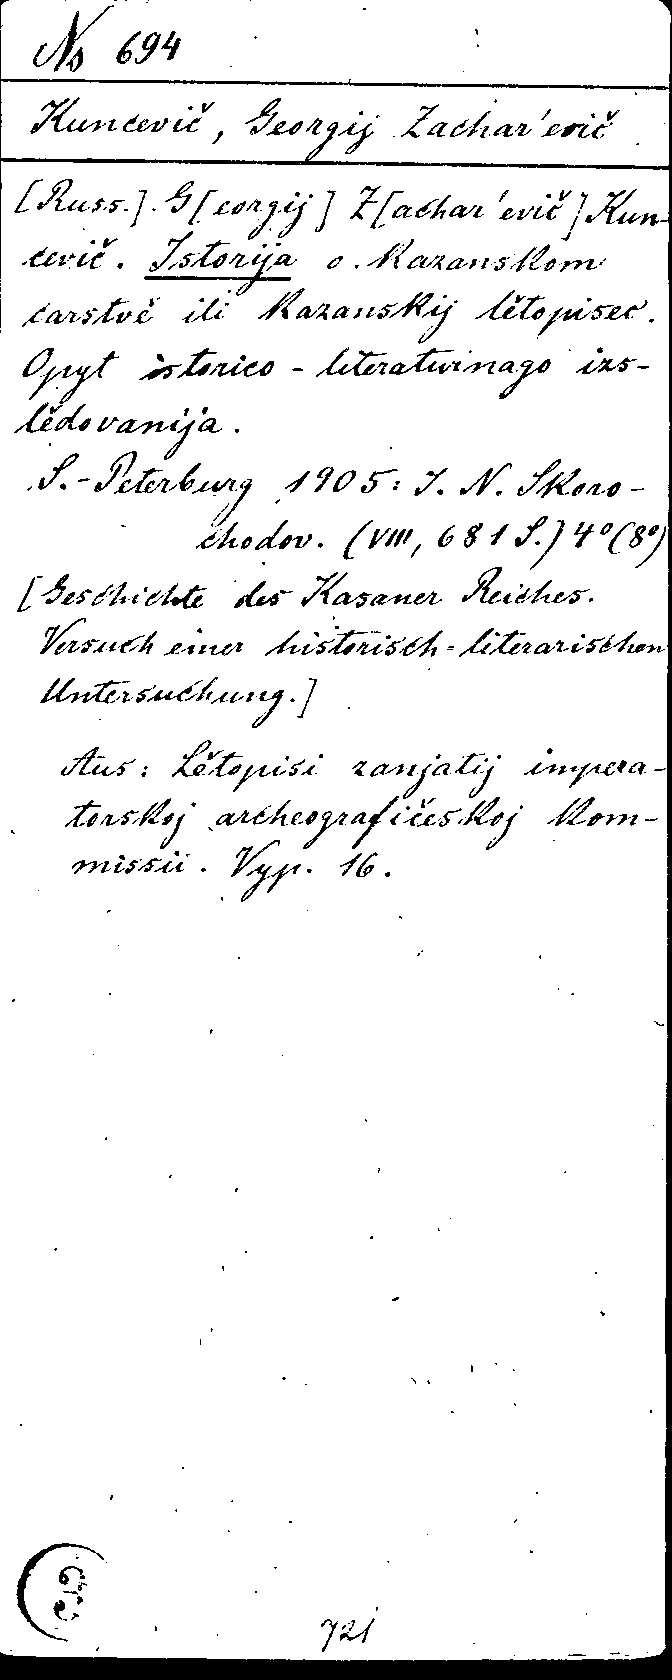 Ns 694
Kuncevič, Georgij Zachar'evič
[Russ.]. G[eorgij] Z[achar'evič] Kun-
cevič. Istorija o Kazanskom
carstvě ili Kazanskij lětopisec.
Opyt istorico-literaturnago izs-
lědovanija.
S.-Peterburg 1905: I. N. Skoro-
chodov. (VIII, 681 S.) 4° (8°)
[Geschichte des Kasaner Reiches.
Versuch einer historisch-literarischen
Untersuchung.]
Aus: Lětopisi zanjatij impera-
torskoj archeografičeskoj Kom-
missii. Vyp. 16.
721